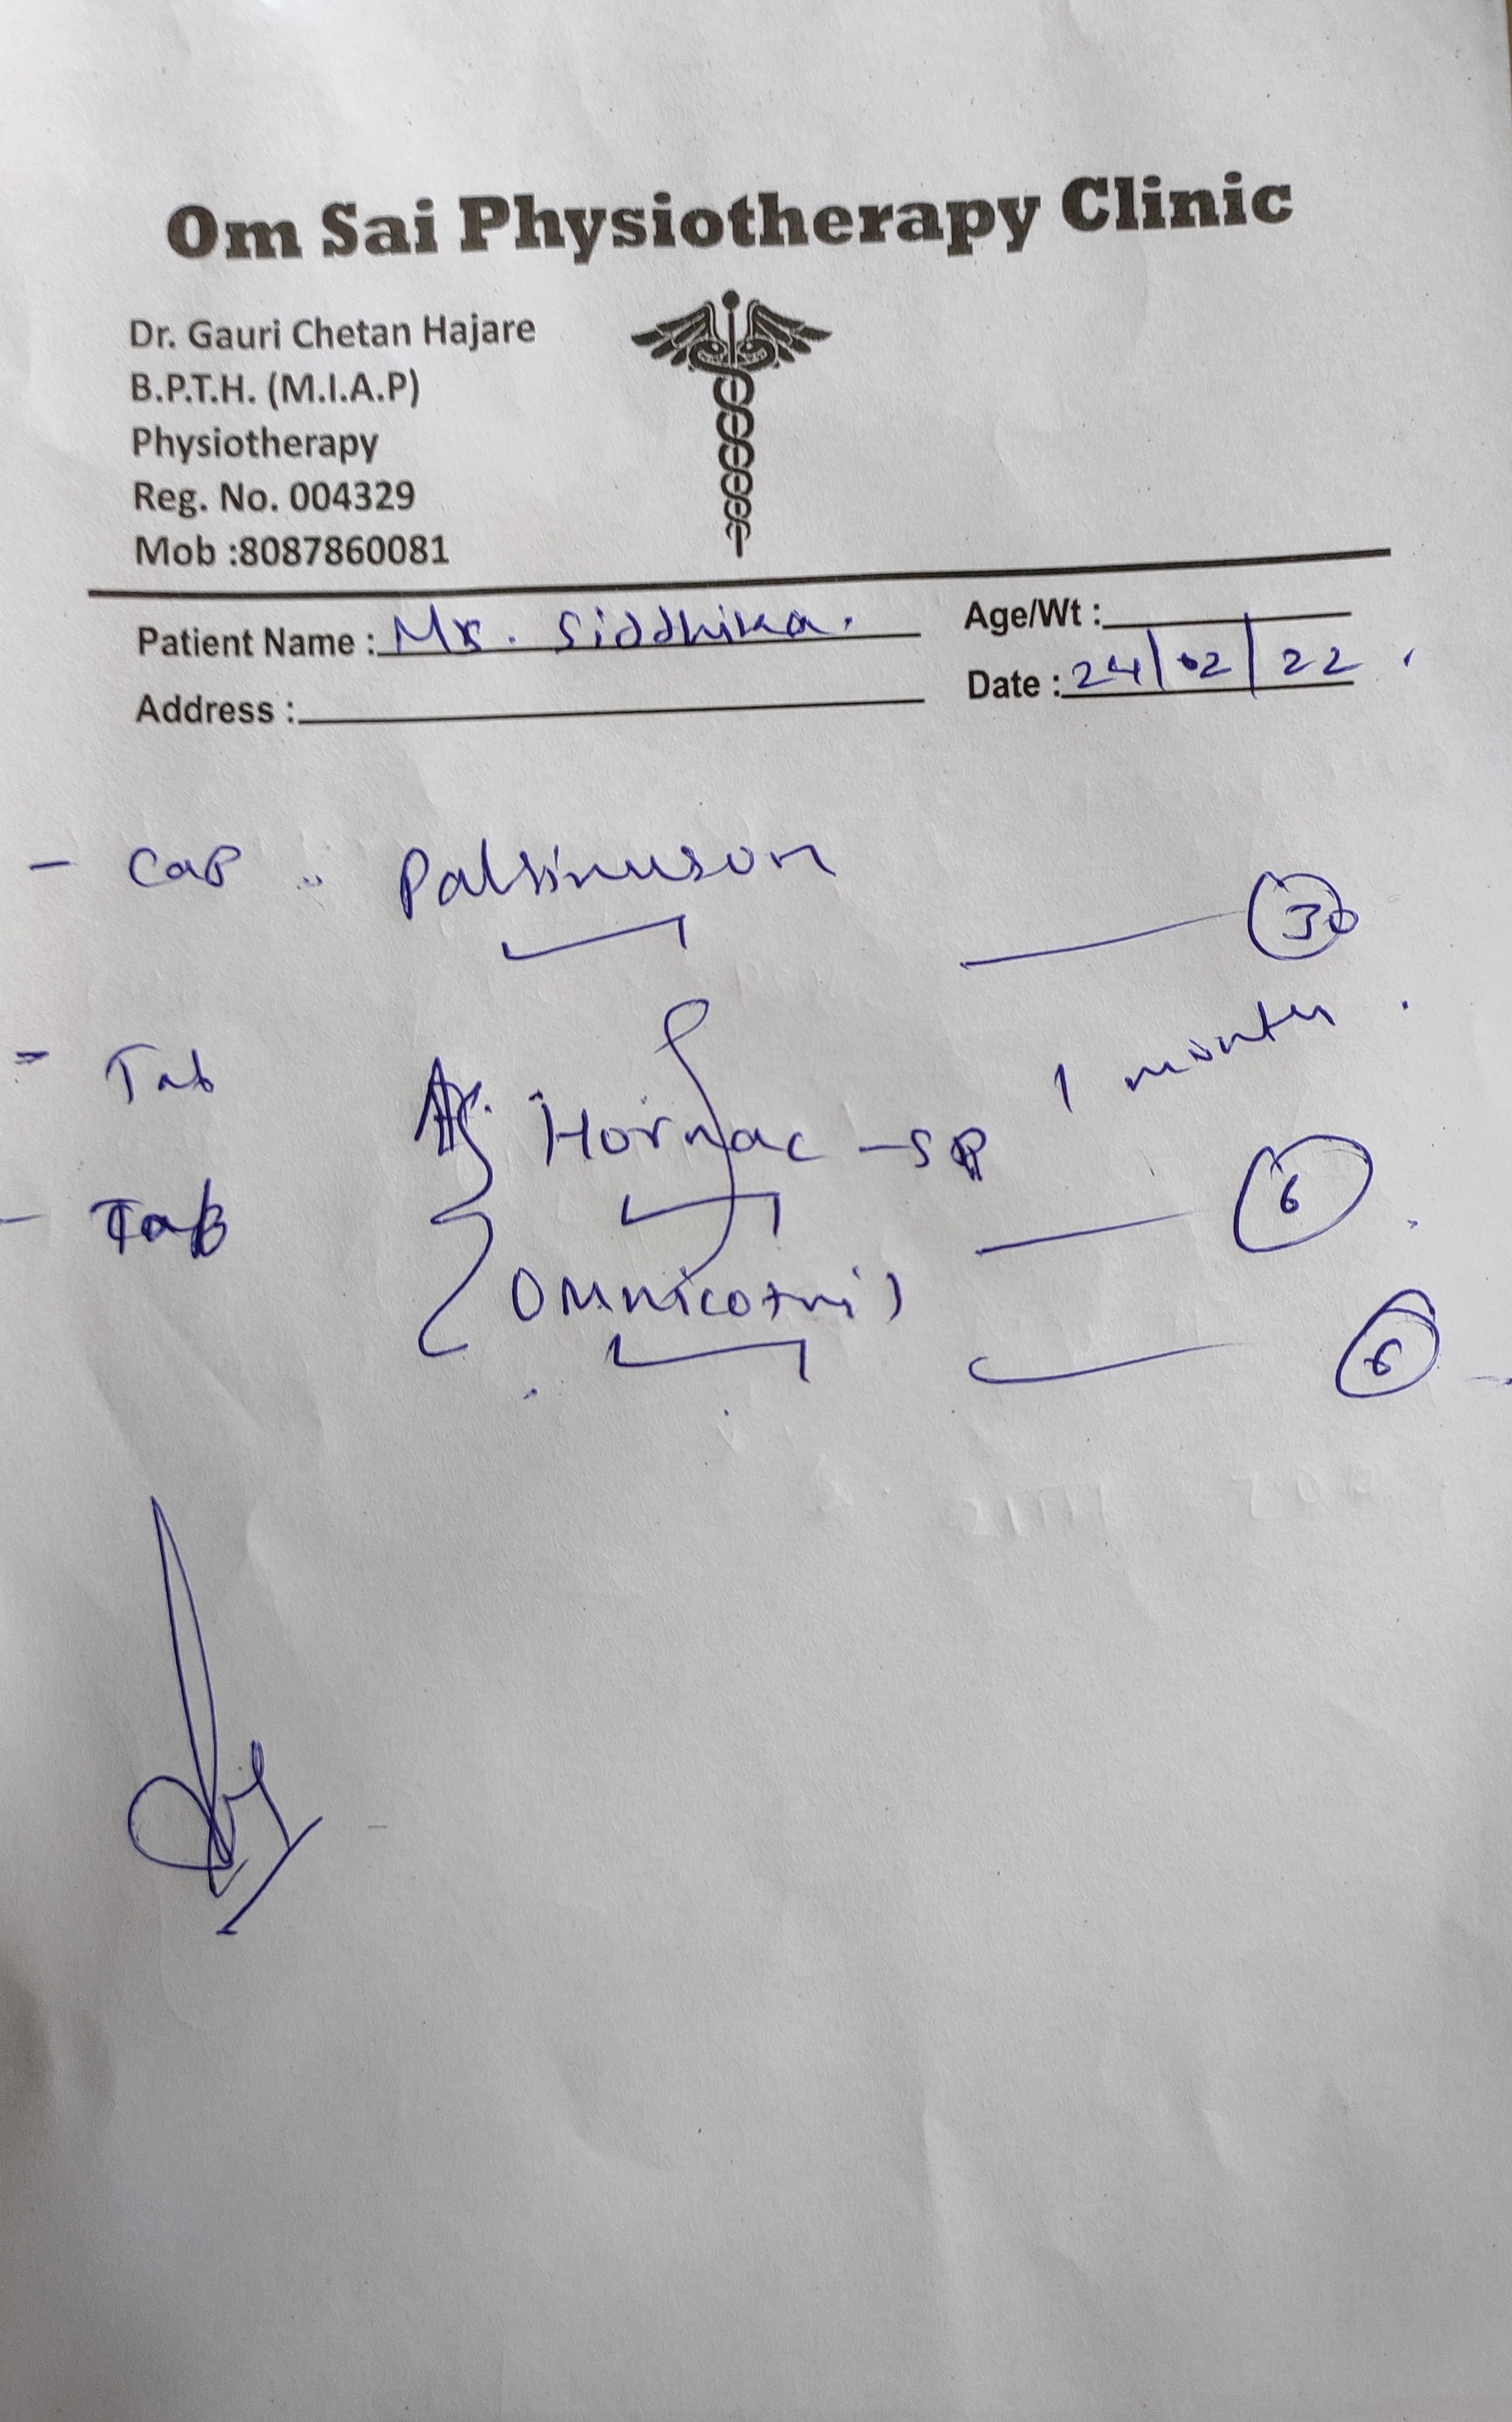 Om Sai Physiotherapy Clinic
Dr. Gauri Chetan Hajare
B.P.T.H. (M.I.A.P)
Physiotherapy
Reg. No. 004329
Mob :8087860081
Patient Name : Siddhika.
Age/Wt :
Address :
Date : 24/02/22
- Cap 30
1 month
Tab Hornac - SP 6
- Tab 6